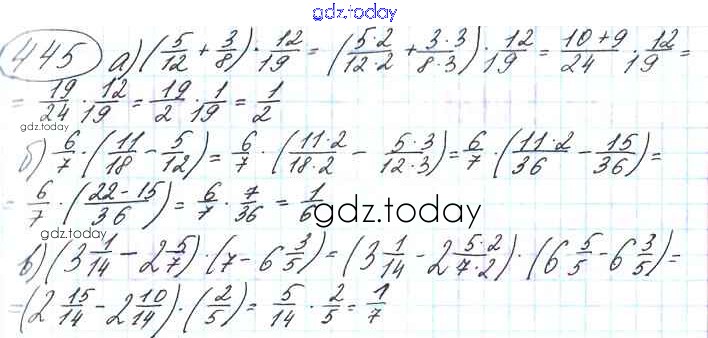 gdz.today
445 а) (5/12 + 3/8) · 12/19 = (5·2/12·2 + 3·3/8·3) · 12/19 = 10+9/24 · 12/19 =
= 19/24 · 12/19 = 19/2 · 1/19 = 1/2
gdz.today
б) 6/7 · (11/18 − 5/12) = 6/7 · (11·2/18·2 − 5·3/12·3) = 6/7 · (11·2/36 − 15/36) =
= 6/7 · (22−15/36) = 6/7 · 7/36 = 1/6
gdz.today
в) (3 1/14 − 2 5/7) · (7 − 6 3/5) = (3 1/14 − 2 5·2/7·2) · (6 5/5 − 6 3/5) =
= (2 15/14 − 2 10/14) · (2/5) = 5/14 · 2/5 = 1/7
gdz.today